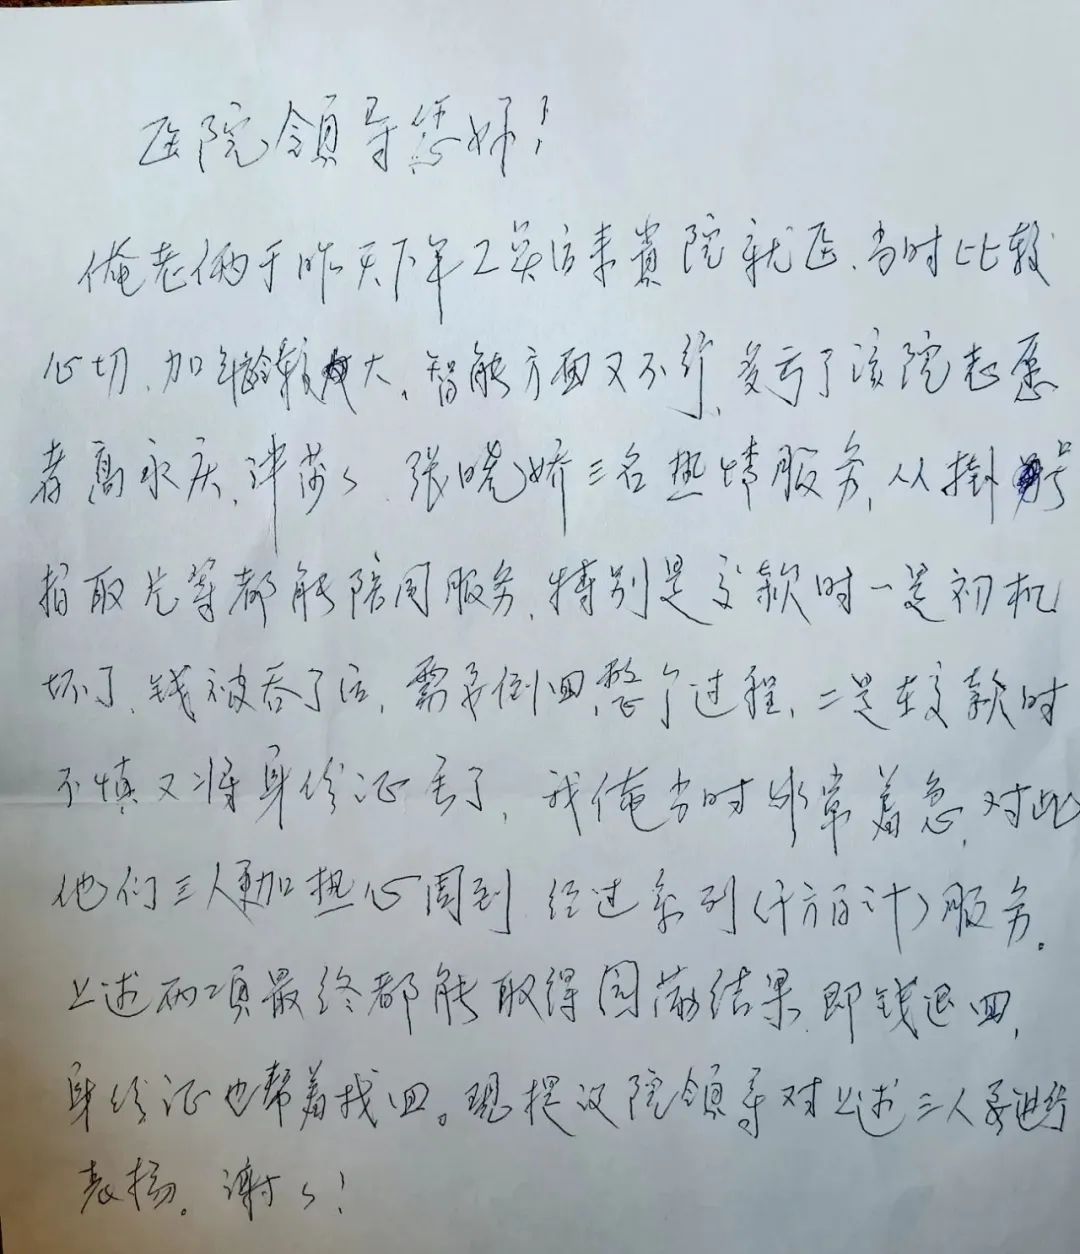 医院领导您好!
俺老俩于昨天下午2点后来贵院就医、当时比较
心切、加年龄较大、智能方面又不行,多亏了该院志愿
者高永庆、许莎々、张晓娇三名热情服务,从掛号
拍取片等都能陪同服务,特别是交款时一是初机
坏了、钱被吞了后,需要倒回整个过程,二是在交款时
不慎又将身份证丢了,我俺当时非常着急,对此
他们三人更加热心周到 经过系列(千方百计)服务。
上述两项最终都能取得圆满结果,即钱退回,
身份证也帮着找回。现提议院领导对上述三人予进行
表扬。谢々!